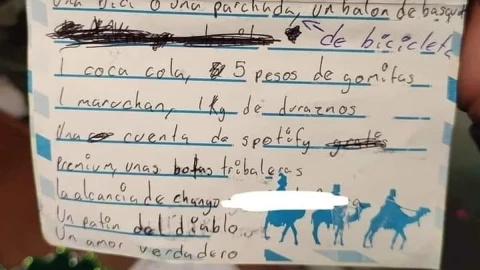 una bici o una parchada, un balon de basquet
de bicicleta
1 coca cola, 5 pesos de gomitas
1 maruchan, 1 Kg de duraznos
Una cuenta de spotify
Premium, unas botas tribaleras
la alcancia de chango
Un patin del diablo
Un amor verdadero